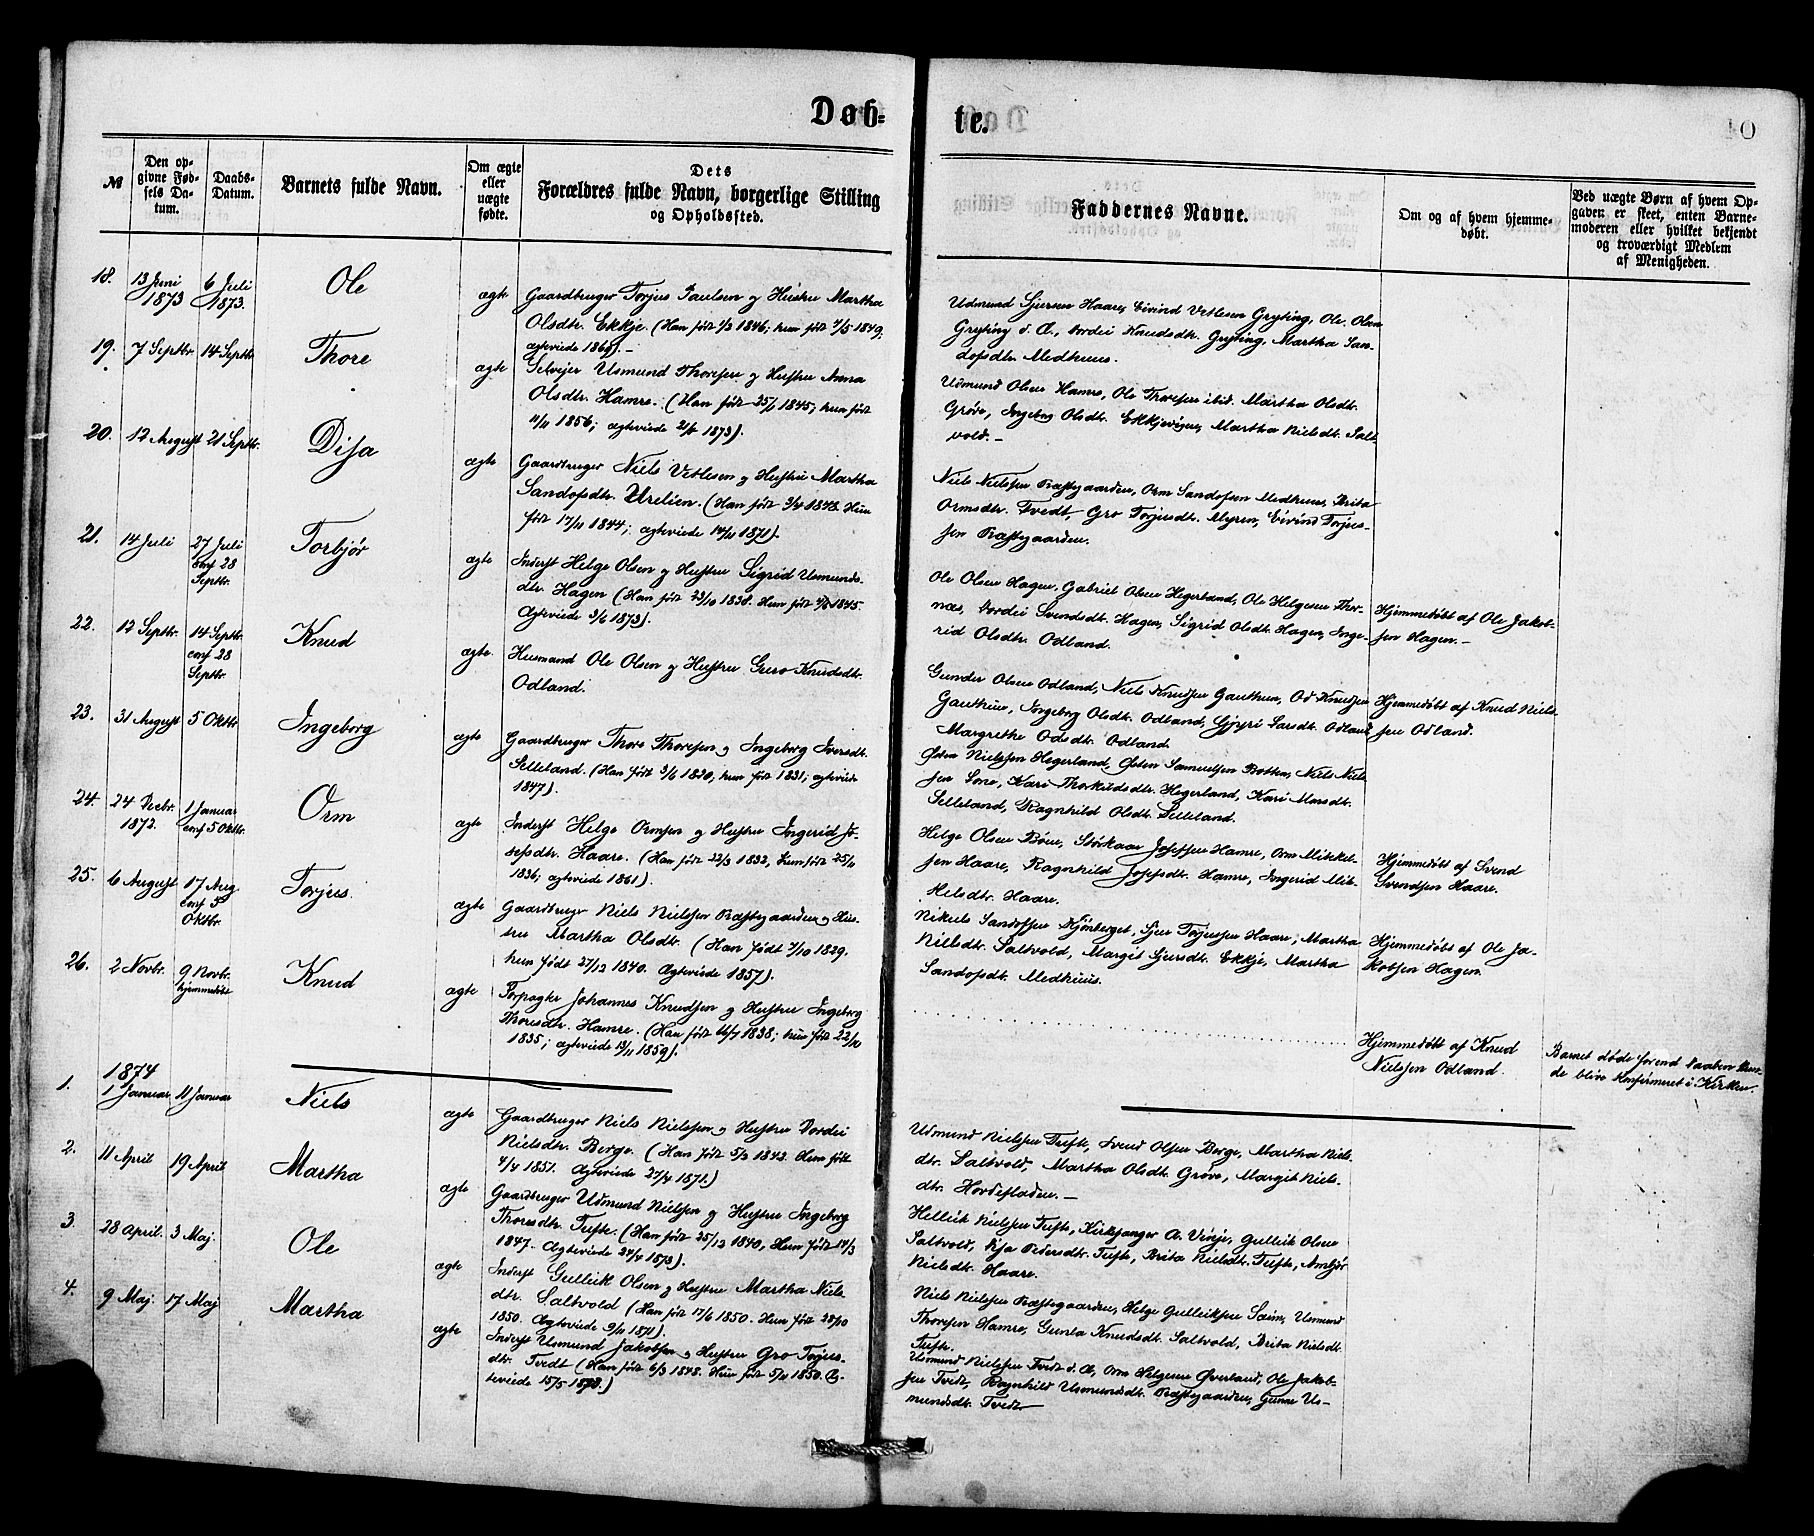 Døb-
te.
10
№
Den op-
givne Fød-
sels Da-
tum.
Daabs-
Datum.
Barnets fulde Navn.
Om ægte
eller
uægte
fødte.
Dets
Forældres fulde Navn, borgerlige Stilling
og Opholdssted.
Faddernes Navne.
Om og af hvem hjemme-
døbt.
Ved uægte Børn af hvem Op-
gaven er skeet, enten Barne-
moderen eller hvilket bekjendt
og troværdigt Medlem
af Menigheden.
18. 13 Juni 1873 6 Juli 1873. Ole ægte
Gaardbruger Torjus Paulsen og Hustru Martha
Olsdtr. Ekkje. (Han født 1/3 1846; hun født 4/5 1849,
ægteviede 1868). -
Udmund Sjursen Haare, Eivind Vetlesen Gryting, Ole Olsen
Gryting d. Æ., Dordei Knudsdtr. Gryting, Martha San-
dofsdtr. Medhuus.
19. 7 Septbr. 14 Septbr Thore ægte
Selveier Usmund Thoresen og Hustru Anna
Olsdtr. Hamre. (Han født 25/1 1845, hun født
11/11 1856; ægteviede 1873).
Udmund Olsen Hamre, Ole Thoresen ibid. Martha Olsdtr.
Grøve, Ingeborg Olsdtr. Ekkjevigen, Martha Nielsdtr. Salt-
vold. -
20. 12 August 21 Septbr. Disa ægte
Gaardbruger Niels Vetlesen og Hustru Martha
Sandofsdtr. Urelien. (Han født 3/4 1843. Hun
født 17/11 1844; ægteviede 14/11 1871).
Niels Nielsen Præstegaarden, Orm Sandofsen Medhuus, Brita
Ormsdtr. Tvedt, Gro Torjusdtr. Myren, Eivind Torjus-
sen Præstegaarden.
21. 14 Juli 27 Juli conf 28 Septbr. Torbjør ægte
Inderst Helge Olsen og Hustru Sigrid Usmunds-
dtr. Hagen (Han født 23/10 1838. Hun født 1845.
Ægteviede 3/6 1873).
Ole Olsen Hagen, Gabriel Olsen Hegerland, Ole Helgesen Thor-
næs, Dordei Svendsdtr. Hagen, Sigrid Olsdtr. Hagen, Inge-
rid Olsdtr. Odland.
Hjemmedøbt af Ole Jakob-
sen Hagen. -
22. 12 Septbr. 14 Septbr. conf 28 Septbr. Knud ægte
Husmand Ole Olsen og Hustru Guro Knudsdtr.
Odland.
Gunder Olsen Odland, Niels Knudsen Gauthun, Od Knudsen
Gauthun, Ingeborg Olsdtr. Odland, Gjyri Larsdtr. Odland,
Margrethe Odsdtr. Odland.
Hjemmedøbt af Knud Niels-
sen Odland.
23. 31 August 5 Oktbr Ingeborg ægte
Gaardbruger Thore Thoresen og Ingeborg Iversdtr.
Lilleland. (Han født 3/6 1820, hun født 1831; ægteviede
1847).
Østen Nielssen Hegerland, Østen Samuelsen Botten, Niels Niels-
sen Sone, Kari Thorkildsdtr. Hegerland, Kari Marsdtr.
Lilleland, Ragnhild Olsdtr. Lilleland.
24. 24 Decbr. 1872. 1 Januar conf 5 Oktbr. Orm ægte
Inderst Helge Ormsen og Hustru Ingerid Jo-
sefsdtr. Haare. (Han født 22/3 1832, hun født 25/11
1836; ægteviede 1861).
Helge Olsen Bøen, Størkaar Josefsen Hamre, Orm Mikkel-
sen Haare, Ragnhild Josefsdtr. Hamre, Ingerid Mik-
kelsdtr. Haare.
Hjemmedøbt af Svend
Svendsen Haare.
25. 6 August 17 Aug. conf 5 Oktbr Torjus. ægte
Gaardbruger Niels Nielssen Præstegaarden og Hus-
tru Martha Olsdtr. (Han født 7/10 1829.
hun født 27/12 1840. Ægteviede 1857).
Nikuls Sandofsen Kjønberget, Sjur Torjussen Haare, Martha
Nielsdtr. Saltvold, Margit Sjursdtr. Ekkje, Martha
Sandofsdtr. Medhuus.
Hjemmedøbt af Ole Ja-
kobsen Hagen.
26. 2 Novbr. 9 Novbr. hjemmedøbt Knud ægte
Forpagter Johannes Knudsen og Hustru Ingeborg
Thoresdtr. Hamre. (Han født 16/7 1838; hun født 22/10
1835; ægteviede 13/11 1859).
Hjemmedøbt af Knud
Nielssen Odland.
Barnet døde førend Daaben kun-
de blive konfirmeret i Kirken.
1874
1. 1 Januar 11 Januar Niels ægte
Gaardbruger Niels Nielssen og Hustru Dordei
Nielsdtr. Berge. (Han født 5/3 1843. Hun født
4/4 1851. Ægteviede 27/4 1871.)
Udmund Nielssen Tufte, Svend Olsen Berge, Martha Niels-
dtr. Saltvold, Martha Olsdtr. Grøve, Margit Niels-
dtr. Hovdefladen. -
2. 11 April 19 April Martha ægte
Gaardbruger Udmund Nielssen og Hustru Ingeborg
Thoresdtr. Tufte. (Han født 25/12 1840, Hun født 14/3
1847. Ægteviede 24/4 1873).
Hellik Nielssen Tufte, Kirkesanger A. Vinje, Gullik Olsen
Saltvold, Asa Pedersdtr. Tufte, Brita Nielsdtr. Tufte, Ambjør
Nielsdtr. Haare.
3. 28 April. 3 Maj. Ole ægte
Inderst Gullik Olsen og Hustru Martha Niels-
dtr. Saltvold (Han født 17/6 1850. Hun født 28/10
1850. Ægteviede 9/11 1871).
Niels Nielssen Præstegaarden, Helge Gulliksen Saim, Usmund
Thoresen Hamre, Gunla Knudsdtr. Saltvold, Brita Nielsdtr.
Tufte.
4. 9 Maj. 17 Maj Martha ægte
Inderst Usmund Jakobsen og Hustru Gro Torjus-
dtr. Tvedt (Han født 6/3 1848. Hun født 5/11 1850. Æg-
teviede 15/5 1873.)
Usmund Nielssen Tvedt d. Æ, Orm Helgesen Øverland, Ole Jakob-
sen Tvedt, Ragnhild Usmundsdtr. Præstegaarden, Gunne Us-
mundsdtr. Tvedt.